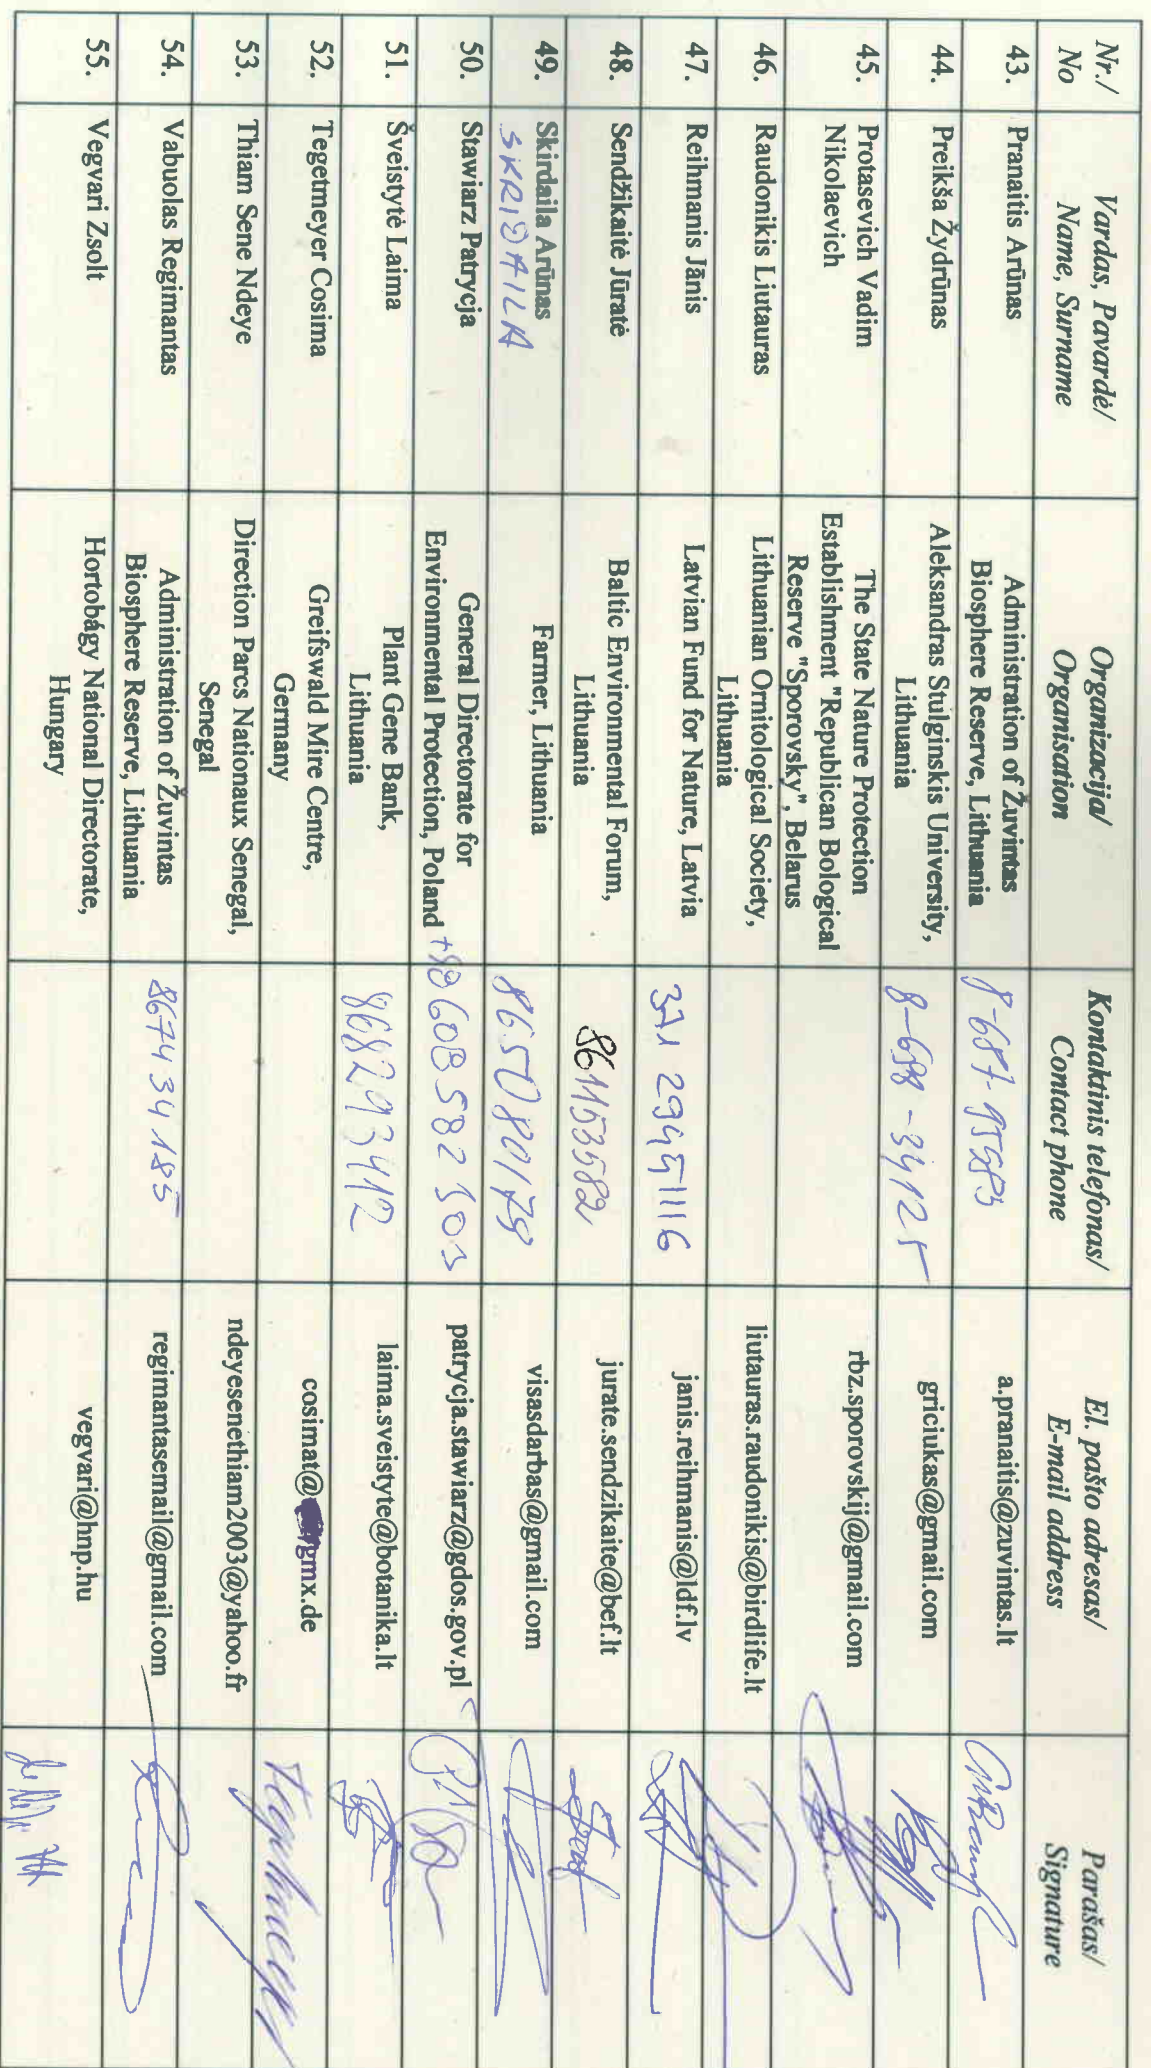 Nr./ No
Vardas, Pavardė/ Name, Surname
Organizacija/ Organisation
Kontaktinis telefonas/ Contact phone
El. pašto adresas/ E-mail address
Parašas/ Signature
43. Pranaitis Arūnas
Administration of Žuvintas
Biosphere Reserve, Lithuania
a.pranaitis@zuvintas.lt
44. Preikša Žydrūnas
Aleksandras Stulginskis University,
Lithuania
8-698-34125
griciukas@gmail.com
45. Protasevich Vadim
Nikolaevich
The State Nature Protection
Establishment "Republican Bological
Reserve "Sporovsky", Belarus
rbz.sporovskij@gmail.com
46. Raudonikis Liutauras
Lithuanian Ornitological Society,
Lithuania
liutauras.raudonikis@birdlife.lt
47. Reihmanis Jānis
Latvian Fund for Nature, Latvia
371 29451116
janis.reihmanis@ldf.lv
48. Sendžikaitė Jūratė
Baltic Environmental Forum,
Lithuania
861153582
jurate.sendzikaite@bef.lt
49. Skirdaila Arūnas
SKRIDAILA
Farmer, Lithuania
visasdarbas@gmail.com
50. Stawiarz Patrycja
General Directorate for
Environmental Protection, Poland
patrycja.stawiarz@gdos.gov.pl
51. Šveistytė Laima
Plant Gene Bank,
Lithuania
868293412
laima.sveistyte@botanika.lt
52. Tegetmeyer Cosima
Greifswald Mire Centre,
Germany
cosimat@gmx.de
53. Thiam Sene Ndeye
Direction Parcs Nationaux Senegal,
Senegal
ndeyesenethiam2003@yahoo.fr
54. Vabuolas Regimantas
Administration of Žuvintas
Biosphere Reserve, Lithuania
867434185
regimantasemail@gmail.com
55. Vegvari Zsolt
Hortobágy National Directorate,
Hungary
vegvari@hnp.hu